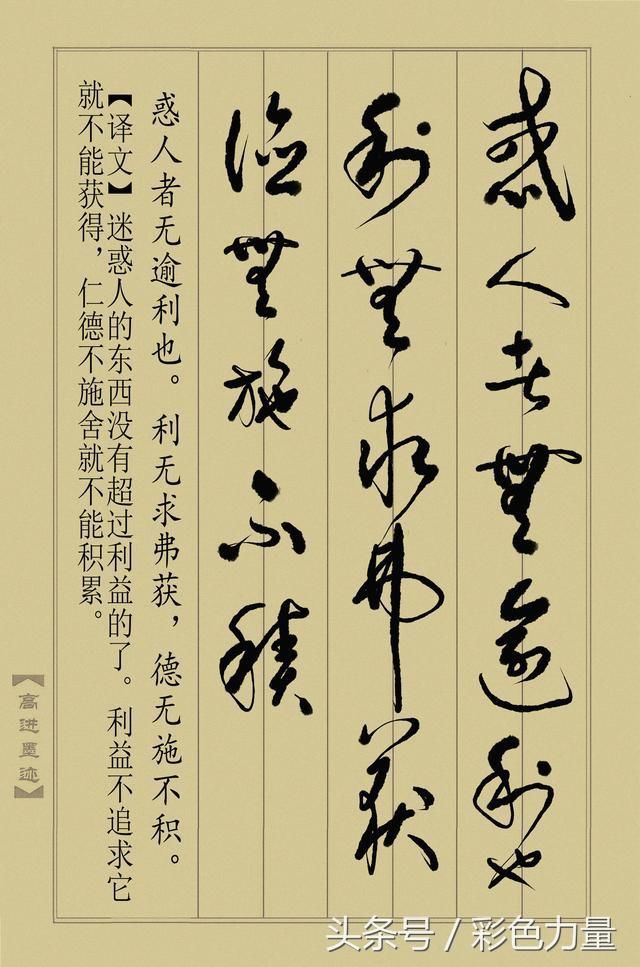 惑人者無逾利也
利無求弗获
德無施不積
惑人者无逾利也。利无求弗获，德无施不积。
【译文】迷惑人的东西没有超过利益的了。利益不追求它
就不能获得，仁德不施舍就不能积累。
【高进墨迹】
头条号／彩色力量